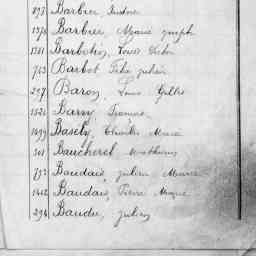 893 Barbier, Isidore
1378 Barbier, Marie Joseph
1381 Barbotin, Louis Victor
763 Barbot Félix Julien
297 Baron, Louis Gilles
1524 Barry François
1499 Basely, Charles Marie
301 Baucherel Mathurin
792 Baudais, Julien Marie
1412 Baudais, Pierre Marie
294 Baudu, Julien